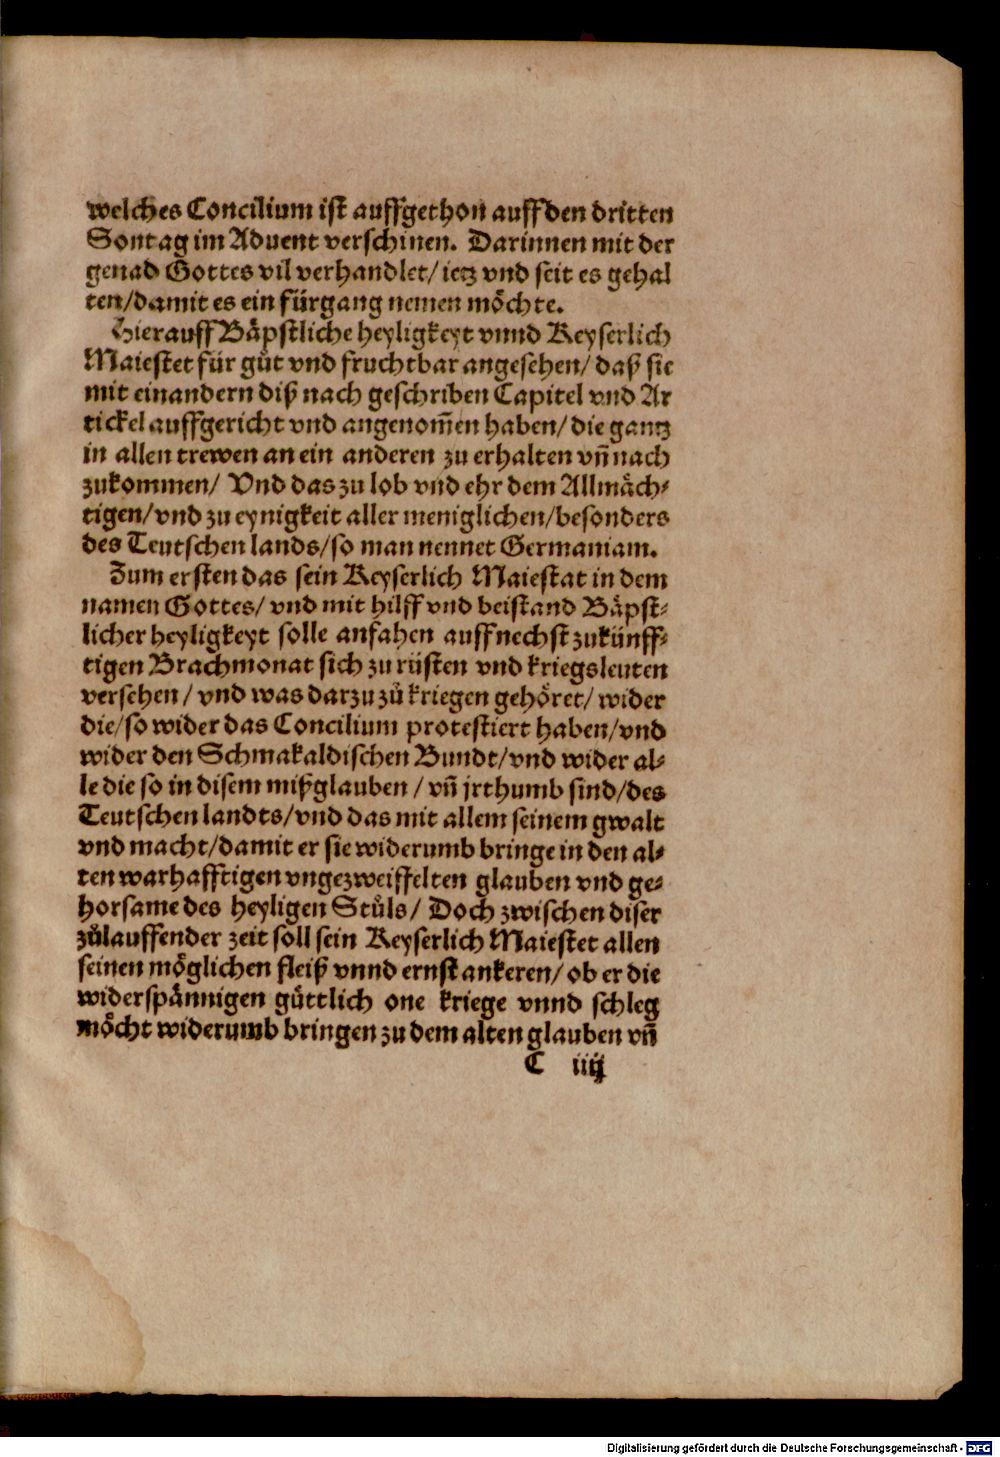 welches Concilium ist auffgethon auff den dritten
Sontag im Aduent verschinen. Darinnen mit der
genad Gottes vil verhandlet/ ietz vnd seit es gehal
ten/damit es ein fürgang nemen möchte.
Hierauff Bäpstliche heyligkeyt vnnd Keyserlich
Maiestet für gůt vnd fruchtbar angesehen/ daß sie
mit einandern diß nach geschriben Capitel vnd Ar
tickel auffgericht vnd angenom̃en haben/ die gantz
in allen trewen an ein anderen zu erhalten vñ nach
zukommen/ Vnd das zu lob vnd ehr dem Allmäch-
tigen/vnd zu eynigkeit aller meniglichen/besonders
des Teutschen lands/so man nennet Germaniam.
Zum ersten das sein Keyserlich Maiestat in dem
namen Gottes/ vnd mit hilff vnd beistand Bäpst-
licher heyligkeyt solle anfahen auff nechst zukünff-
tigen Brachmonat sich zu rüsten vnd kriegsleuten
versehen/ vnd was darzu zů kriegen gehöret/ wider
die/so wider das Concilium protestiert haben/vnd
wider den Schmakaldischen Bundt/vnd wider al-
le die so in disem mißglauben/ vñ jrthumb sind/des
Teutschen landts/vnd das mit allem seinem gwalt
vnd macht/damit er sie widerumb bringe in den al-
ten warhafftigen vngezweiffelten glauben vnd ge-
horsame des heyligen Stůls/ Doch zwischen diser
zůlauffender zeit soll sein Keyserlich Maiestet allen
seinen möglichen fleiß vnnd ernst ankeren/ ob er die
widerspännigen gůttlich one kriege vnnd schleg
möcht widerumb bringen zu dem alten glauben vñ
C iiij
Digitalisierung gefördert durch die Deutsche Forschungsgemeinschaft - DFG